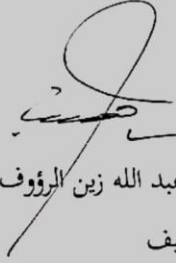 عبد الله زين الرؤوف
يف